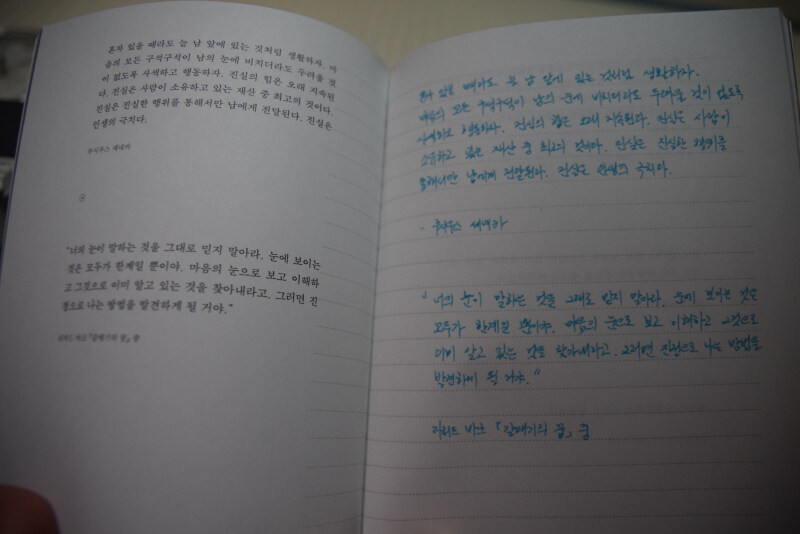 혼자 있을 때라도 늘 남 앞에 있는 것처럼 생활하자. 마
음의 모든 구석구석이 남의 눈에 비치더라도 두려울 것
이 없도록 사색하고 행동하자. 진실의 힘은 오래 지속된
다. 진실은 사람이 소유하고 있는 재산 중 최고의 것이다.
진실은 진실한 행위를 통해서만 남에게 전달된다. 진실은
인생의 극치다.
루시우스 세네카
"너의 눈이 말하는 것을 그대로 믿지 말아라. 눈에 보이는
것은 모두가 한계일 뿐이야. 마음의 눈으로 보고 이해하
고 그것으로 이미 알고 있는 것을 찾아내라고. 그러면 진
정으로 나는 방법을 발견하게 될 거야."
리처드 바크 『갈매기의 꿈』 중
혼자 있을 때라도 늘 남 앞에 있는 것처럼 생활하자.
마음의 모든 구석구석이 남의 눈에 비치더라도 두려울 것이 없도록
사색하고 행동하자. 진실의 힘은 오래 지속된다. 진실은 사람이
소유하고 있는 재산 중 최고의 것이다. 진실은 진실한 행위를
통해서만 남에게 전달된다. 진실은 인생의 극치다.
- 루시우스 세네카
"너의 눈이 말하는 것을 그대로 믿지 말아라. 눈에 보이는 것은
모두가 한계일 뿐이야. 마음의 눈으로 보고 이해하고 그것으로
이미 알고 있는 것을 찾아내라고. 그러면 진정으로 나는 방법을
발견하게 될 거야."
리처드 바크 「갈매기의 꿈」 중